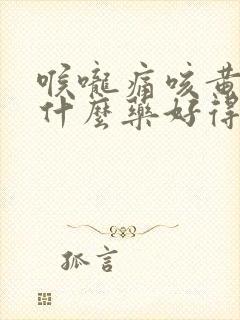 喉嚨痛咳黃
什麼藥好得
孤言